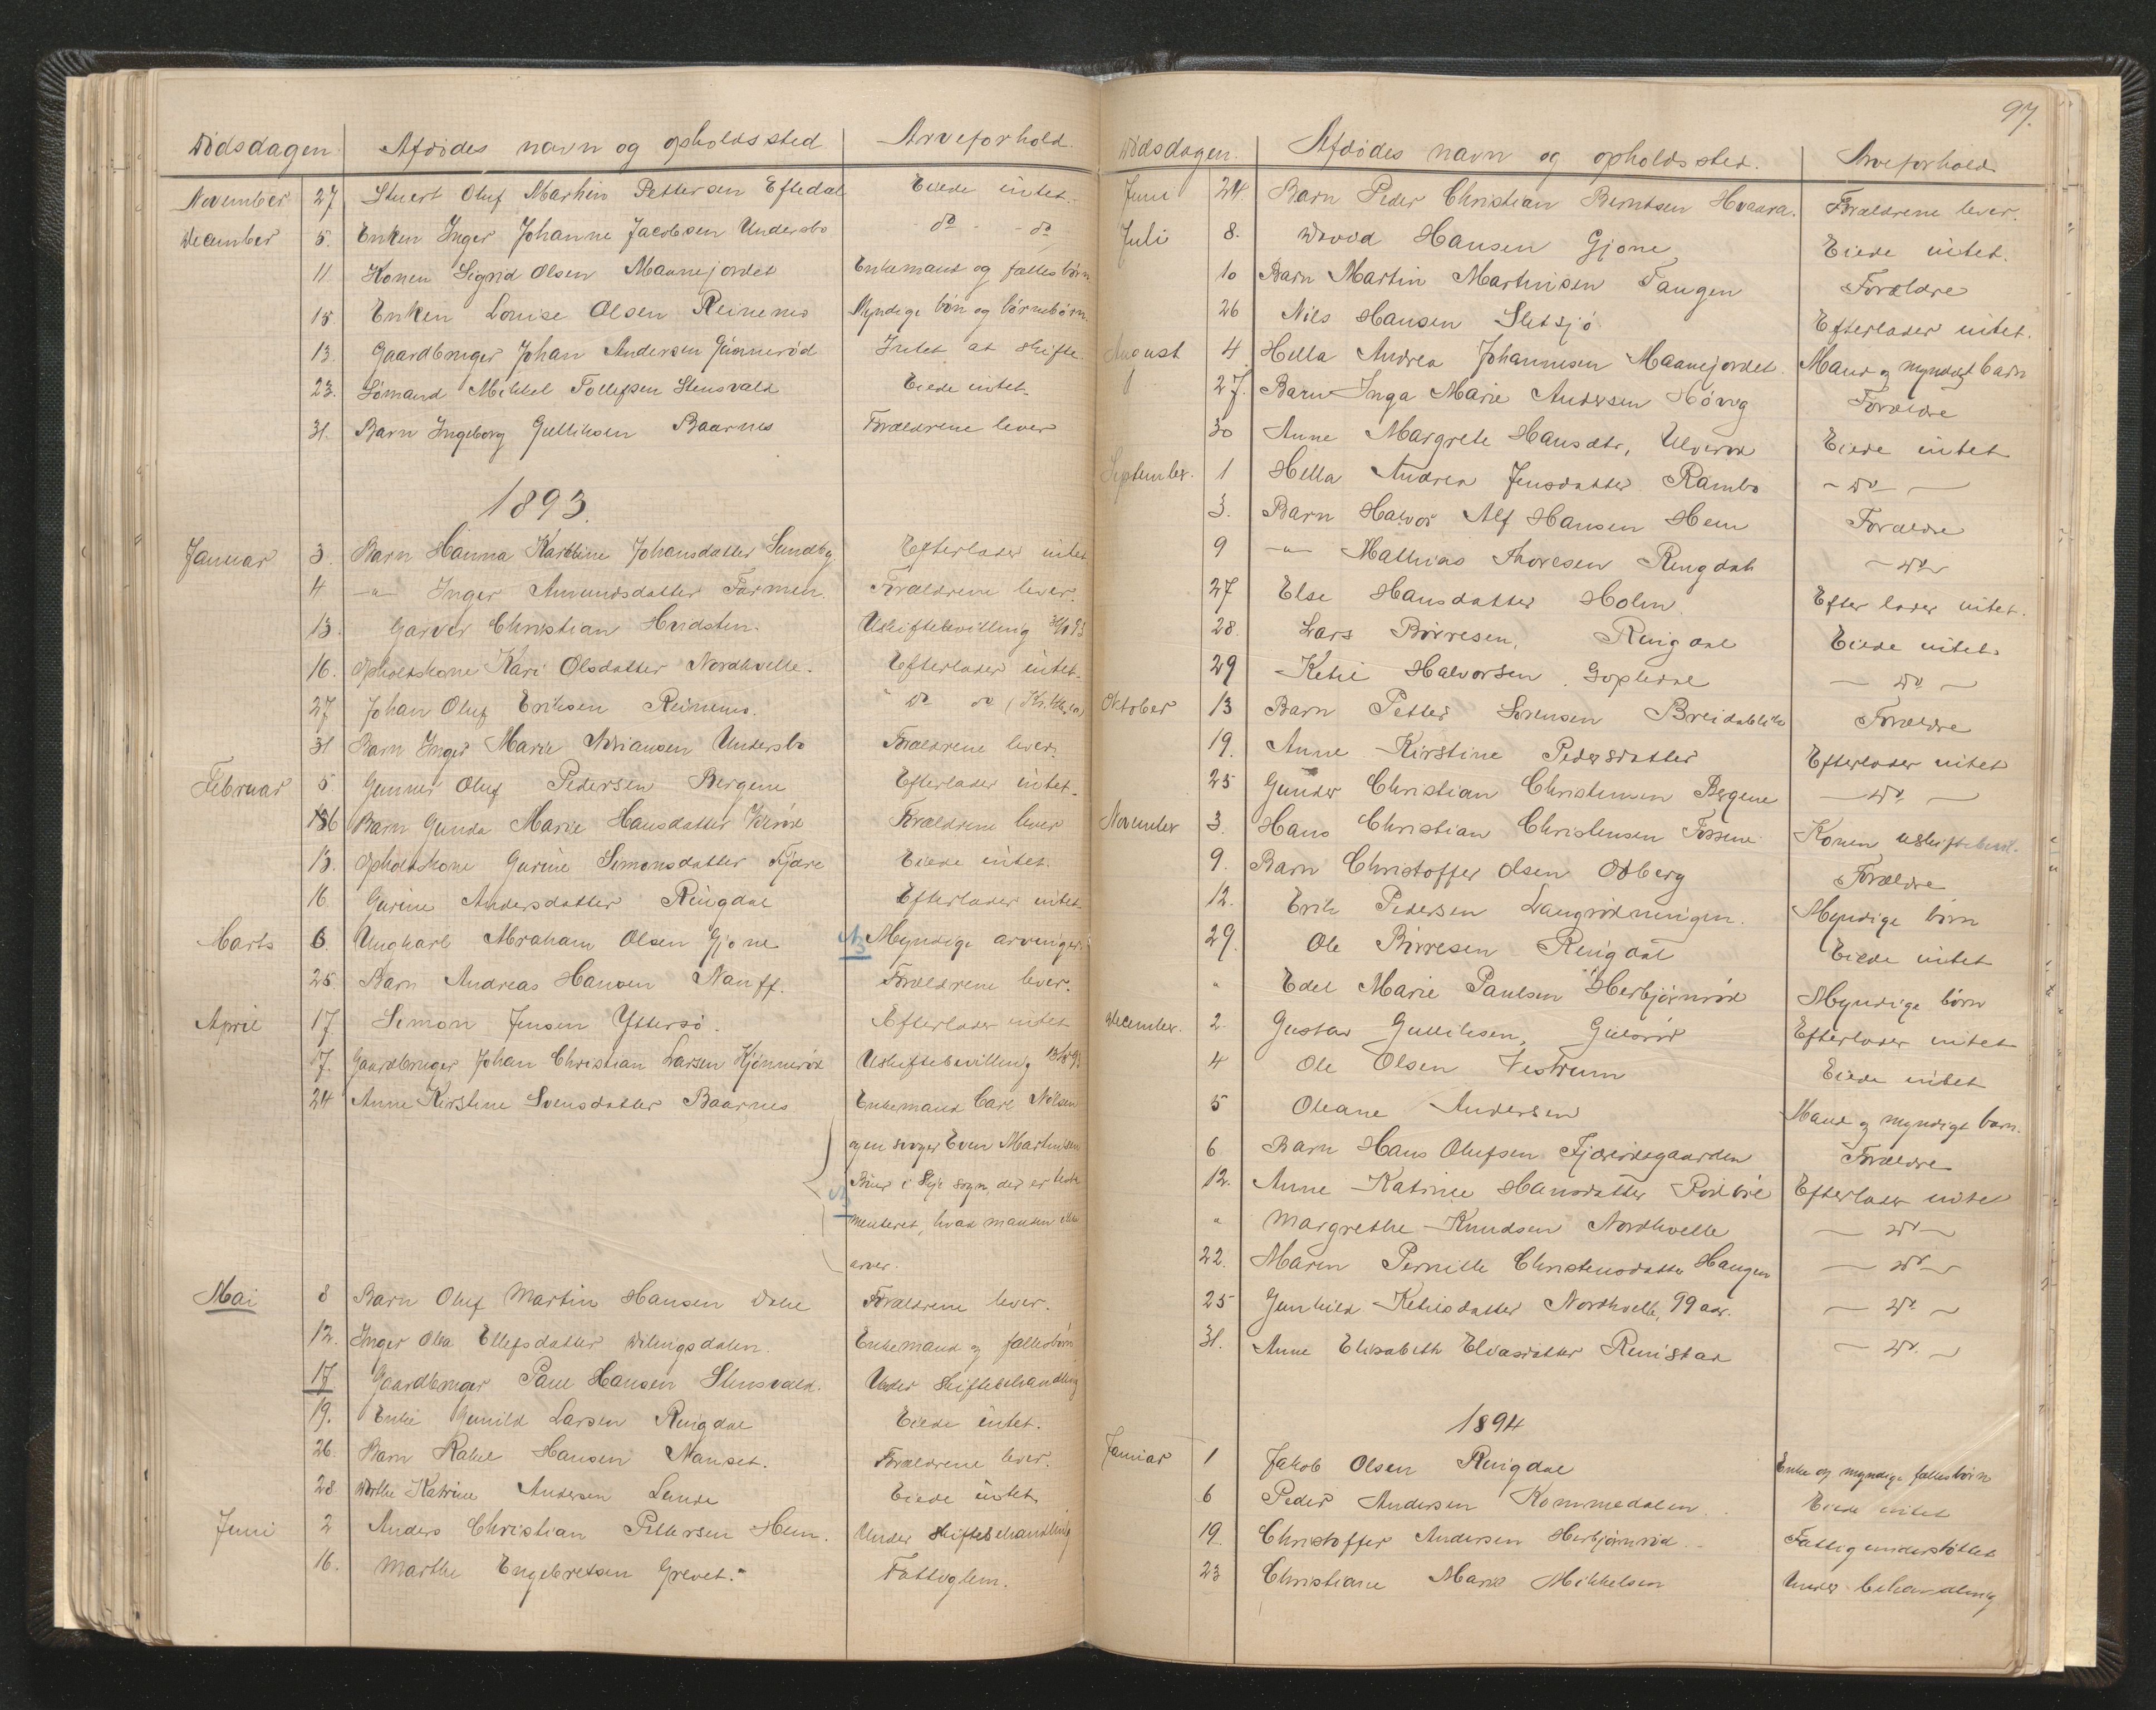 Dødsdagen Afdødes navn og opholdssted Arveforhold.
November 27 Stuert Oluf Marhin Pettersen Eftedal Eiede intet.
December 5. Enken Inger Johanne Jacobsen Undersbo do - do
11 Konen Sigrid Olsen Maanejordet Enkemand og fælles børn
15 Enken Louise Olsen Reinenes Myndige børn og børnebørn.
13. Gaardbruger Johan Andersen Gjønnerød Intet at skifte.
23. Sømand Mikkel Tollefsen Stensvald Eiede intet.
31. Barn Ingeborg Gulliksen Baarnes Forældrene lever
1893.
Januar 3. Barn Hanna Karoline Johansdatter Sundby Efterlader intet
4 -"- Inger Amundsdatter Farmen. Forældrene lever.
13. Garver Christian Hvidsten. Uskiftebevilling
16. Opholdskone Kari Olsdatter Nordkvelle. Efterlader intet.
27 Johan Oluf Eriksen Reinenes. do do
31 Barn Inger Marie Adriansen Undersbo Forældrene lever.
Februar 5 Gunner Oluf Pedersen Bergene Efterlader intet.
Barn Gunda Marie Hansdatter Forældrene lever
13. Opholdskone Gurine Simonsdatter Fjære Eiede intet.
16 Gurine Andersdatter Ringdal Efterlader intet
Marts 6. Ungkarl Abraham Olsen Gjone Myndige arvinger.
25. Barn Andreas Hansen Nanff. Forældrene lever.
April 17 Simon Jensen Yttersø. Efterlader intet
17. Gaardbruger Johan Christian Larsen Kjønnerød Uskiftebevilling
24 Anne Kirstine Svensdatter Baarnes Enkemand Carl Nilsen
og en svoger Even Martinsen
i sogn, der er teste
menteret, hvad manden ikke
arver.
Mai 8 Barn Oluf Martin Hansen Dolve Forældrene lever.
12. Inger Olea Ellefsdatter Dilingsdalen. Enkemand og fællesbørn
17 Gaardbruger Paul Hansen Stensvald. Under skiftebehandling
19. Enke Gunild Larsen Ringdal Eiede intet.
26. Barn Rakel Hansen Nanset. Forældrene lever.
28. Dorthe Katrine Andersen Lunde Eiede intet
Juni 2 Anders Christian Pettersen Hem. Under skiftebehandling
16. Marthe Engebretsen Grevet. Fattiglem.
97.
Dødsdagen. Afdødes navn og opholdssted. Arveforhold
Juni 24. Barn Peder Christian Berntsen Hvaara. Forældrene lever.
Juli 8. David Hansen Gjone Eiede intet.
10 Barn Martin Martinsen Tangen Forældre
26 Nils Hansen Sletsjø Efterlader intet.
August 4 Hella Andrea Johannesen Maanejordet Mand og myndigt barn
27. Barn Inga Marie Andersen Høveg Forældre
30 Anne Margrete Hansdtr, Ulverød Eiede intet
September. 1 Hella Andrea Jensdatter Rambo - do -
3. Barn Halvor Alf Hansen Hem Forældre
9 -"- Mathias Thoresen Ringdal - do -
27 Else Hansdatter Holm Efterlader intet.
28. Lars Børresen, Ringdal Eiede intet.
29 Ketil Halvorsen Gopledal - do -
Oktober 13 Barn Petter Sørensen Breidablik Forældre
19. Anne Kirstine Pedersdatter Efterlader intet
25 Gunder Christian Christensen Bergene - do -
November 3. Hans Christian Christensen Fossene Konen uskiftebevil.
9. Barn Christoffer Olsen Odberg Forældre
12. Erik Pedersen Langrødningen. Myndige børn
29. Ole Børresen Ringdal Eiede intet
" Edel Marie Paulsen Herbjørnrød Myndige børn
December. 2. Gustav Gulliksen, Gulsrød Efterlader intet
4 Ole Olsen Vestrum Eiede intet
5 Oleane Andersen Mand og myndigt barn.
6 Barn Hans Olufsen Fjæreidegaarden Forældre
12. Anne Katrine Hansdatter Efterlader intet
" Margrethe Knudsen Nordkvelle - do -
22. Maren Pernille Christensdatter Haugen - do -
25 Gunhild Ketilsdatter Nordkvelle, 99 aar. - do -
31. Anne Elisabeth Eliasdatter Renistad - do -
1894
Januar 1 Jakob Olsen Ringdal Enke og myndige fællesbørn
6 Peder Andersen Kommedalen. Eiede intet
19. Christoffer Andersen Herbjørnrød Fattigunderstøttet
23 Christiane Marie Mikkelsen Under behandling